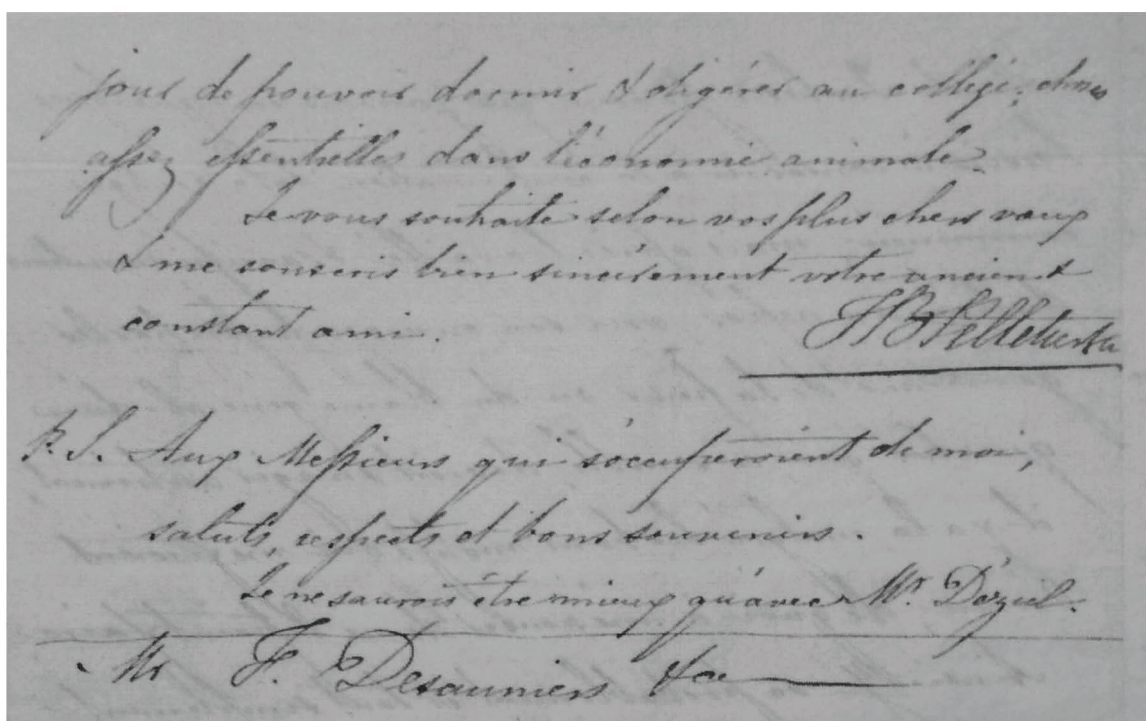 jour de pouvoir dormir & digérer au collège; choses
assez essentielles dans l'économie animale.
Je vous souhaite selon vos plus chers vœux
& me souscris bien sincèrement votre ancien &
constant ami.
J B Pelletier Ptr
P. S. Aux Messieurs qui s'occuperoient de moi,
saluts, respects et bons souvenirs.
Je ne saurois être mieux qu'avec Mr. Déziel.
Mr F. Desauniers &ca